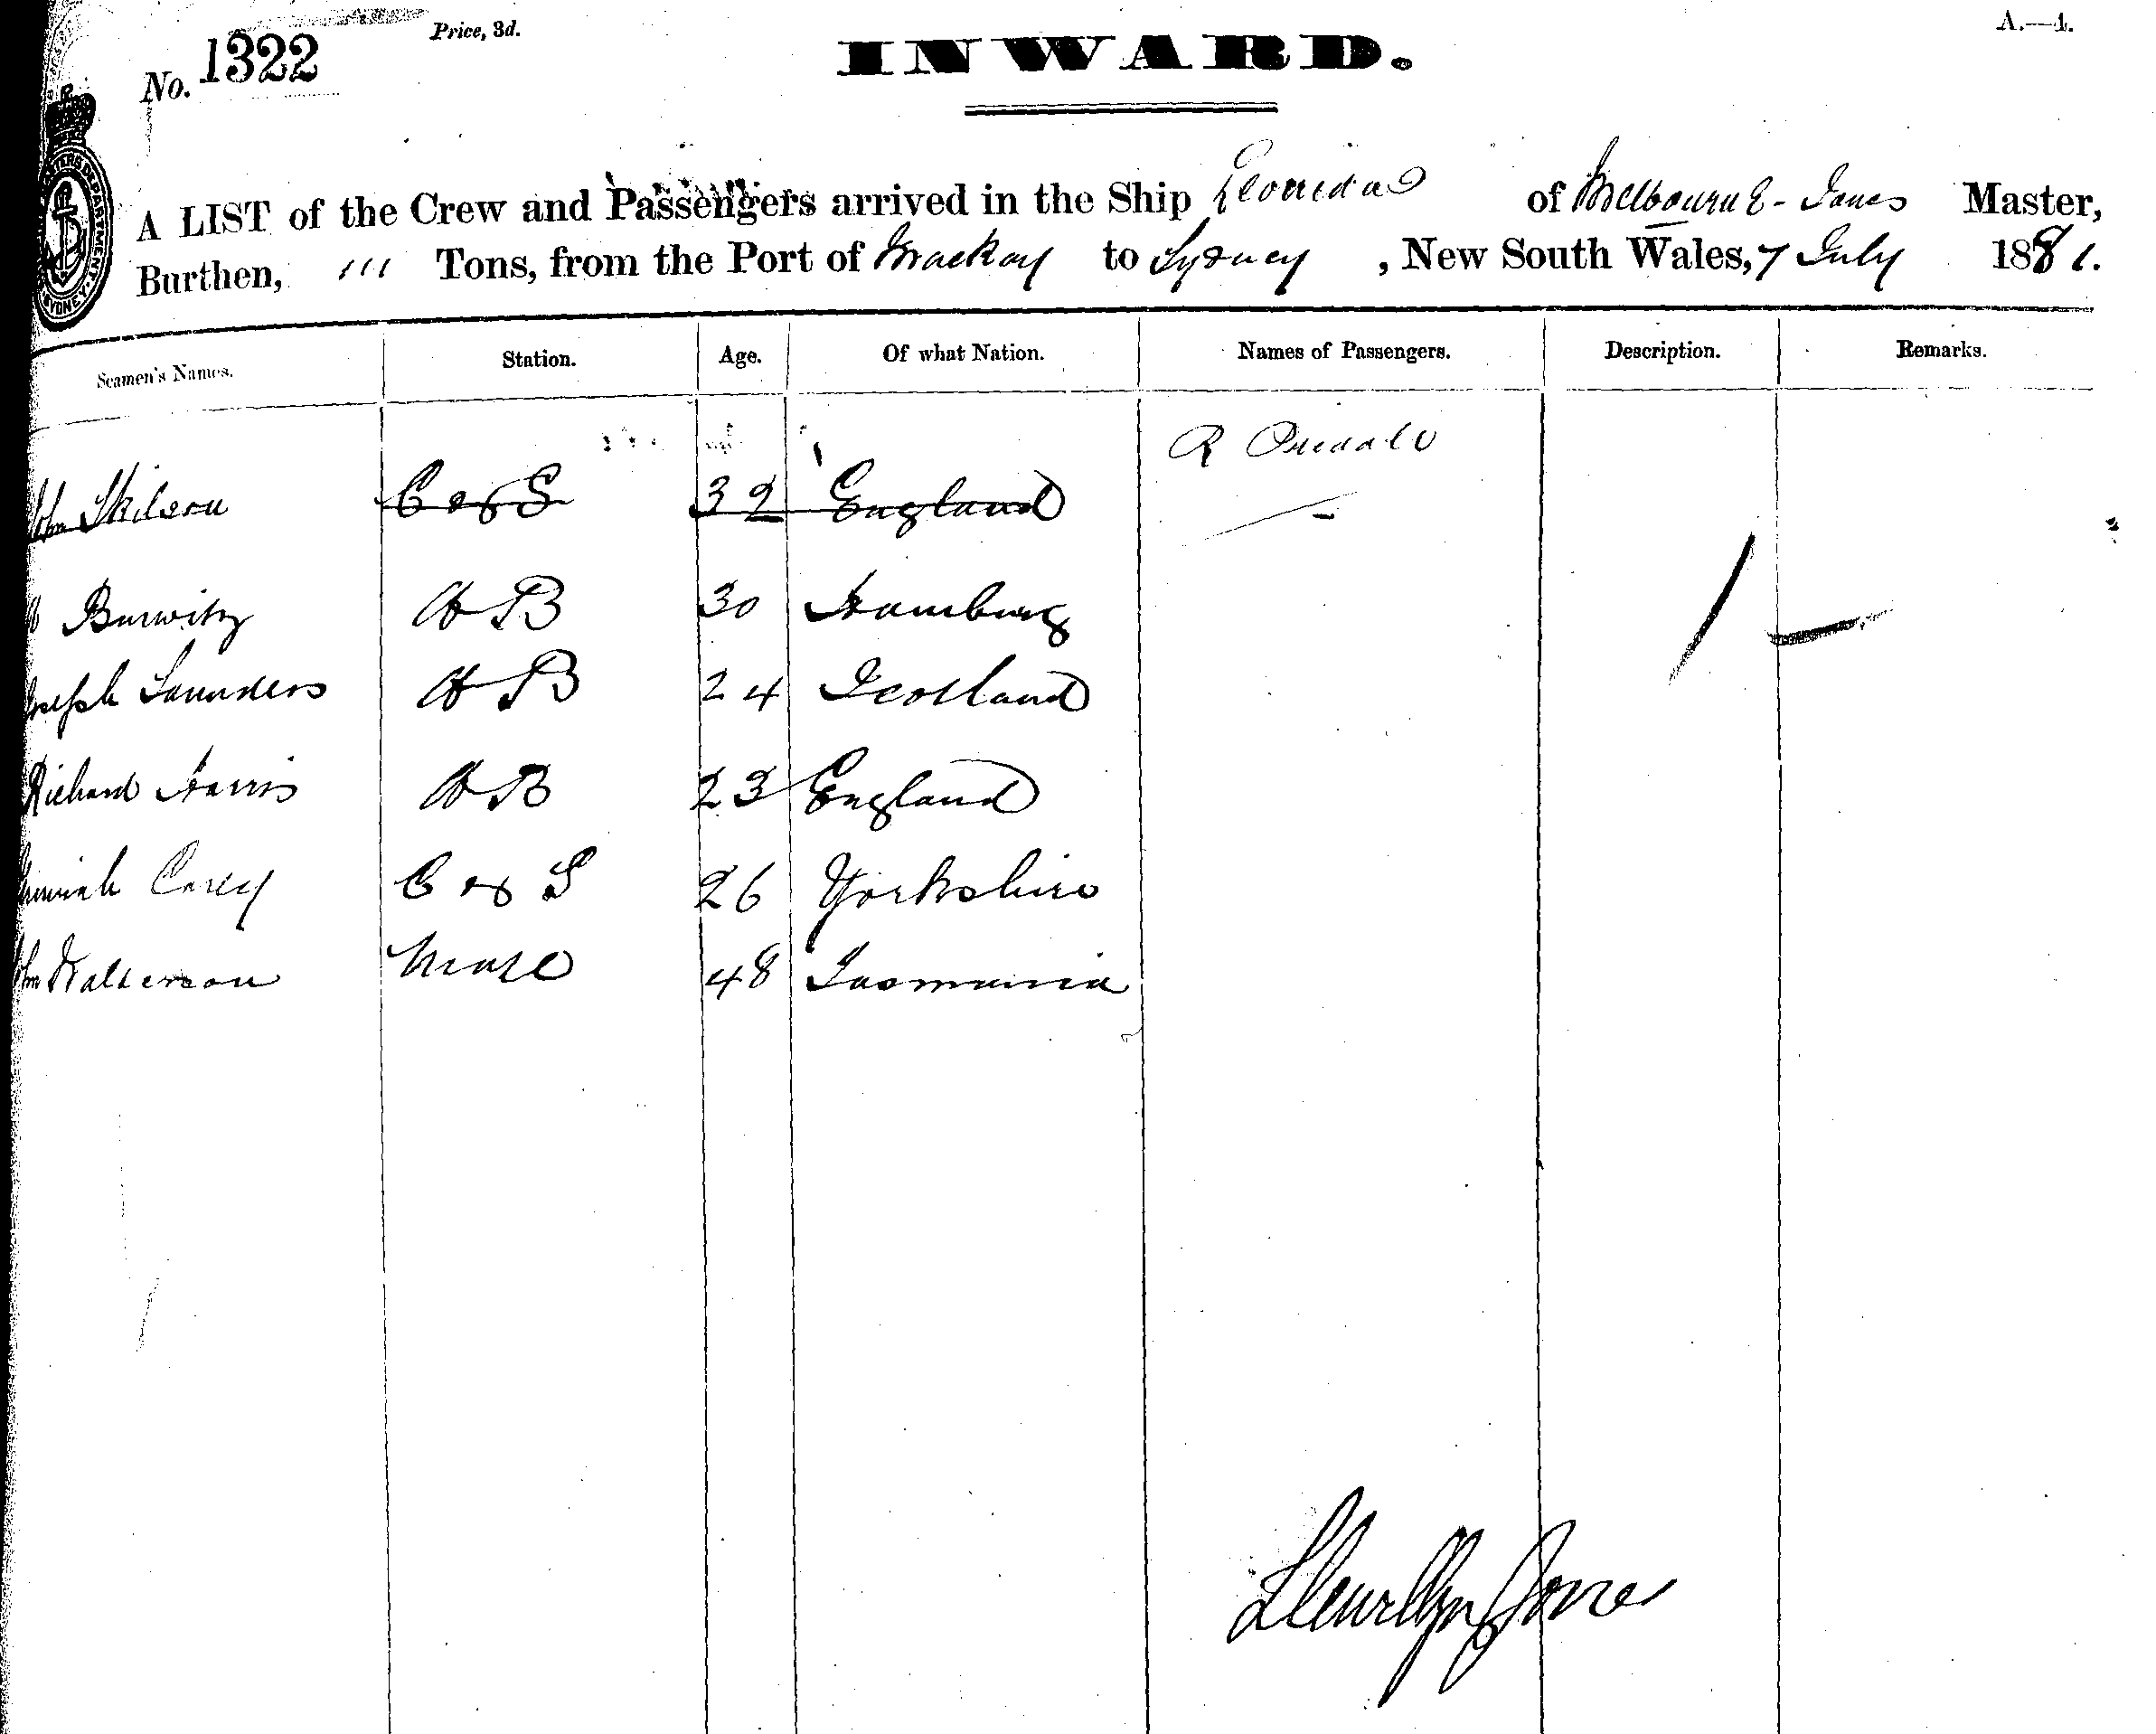 No. 1322
Price, 3d.
A.—4.
INWARD.
A LIST of the Crew and Passengers arrived in the Ship Leonidas of Melbourne - Jones Master,
Burthen, 111 Tons, from the Port of Mackay to Sydney, New South Wales, 7 July 1881.
Seamen's Names. Station. Age. Of what Nation. Names of Passengers. Description. Remarks.
R
John C & S 32 England
Burwitz AB 30 Hamburg
Joseph Saunders AB 24 Scotland
Richard Harris AB 23 England
Jeremiah Carey C & S 26 Yorkshire
John Mate 48 Tasmania
Llewellyn Jones